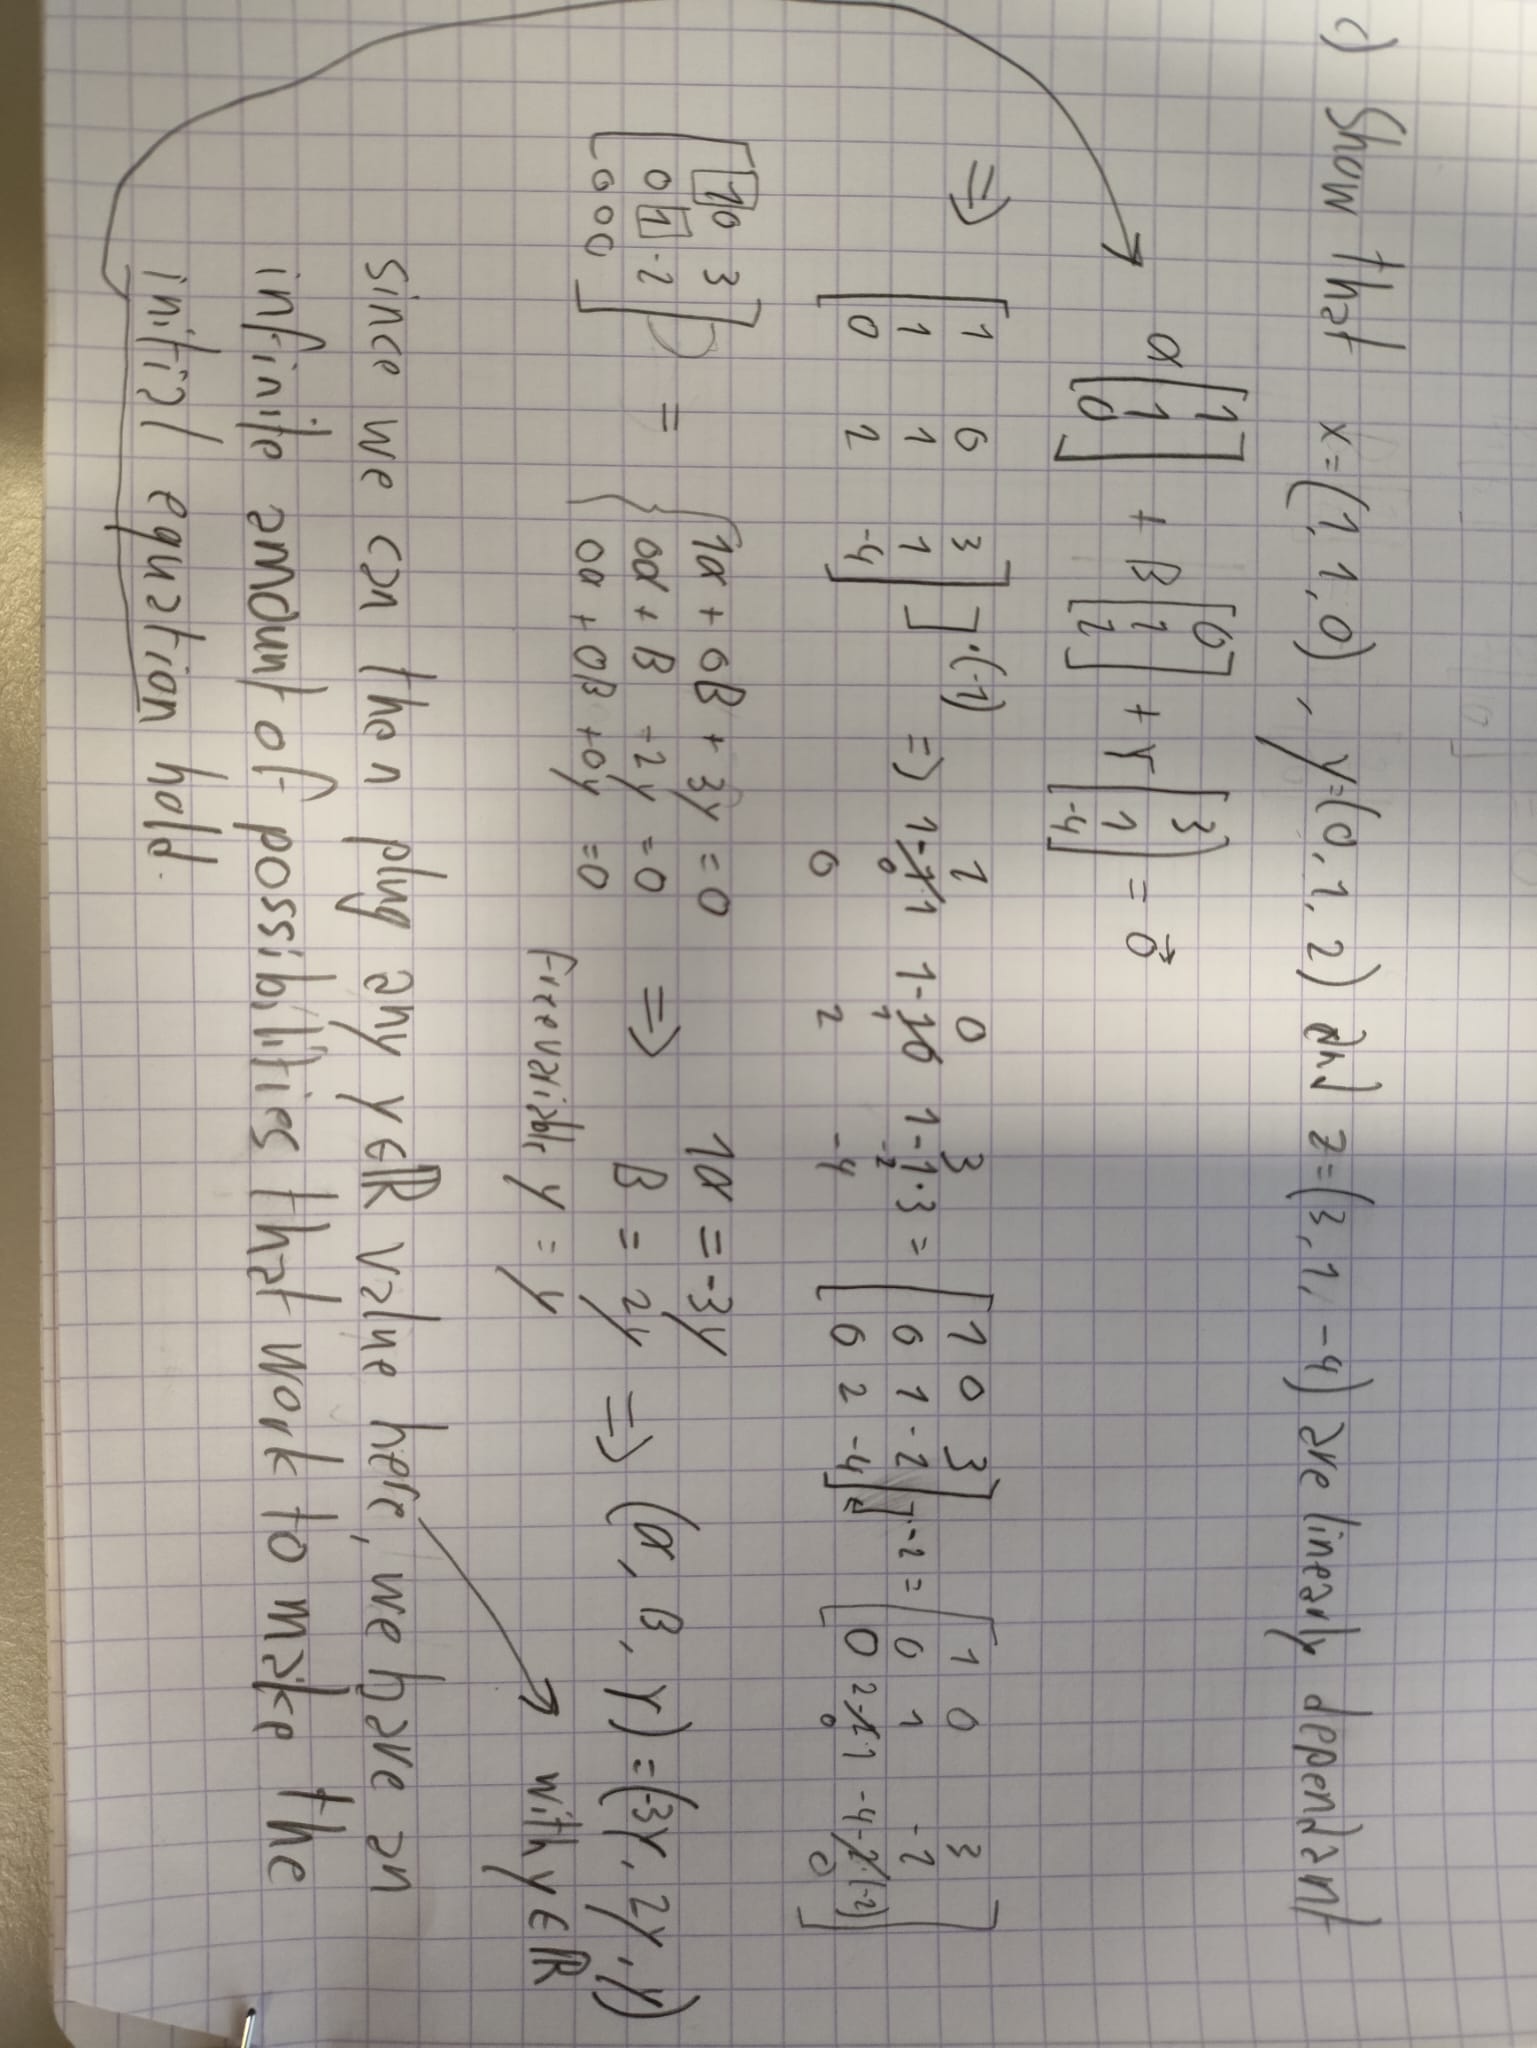 c) Show that x=(1,1,0), y=(0,1,2) and z=(3,1,-4) are linearly dependent
α[1 1 0] + β[0 1 2] + γ[3 1 -4] = 0⃗
=> [1 0 3 ] ·(-1) => 1 0 3 [1 0 3 ] [1 0 3
1 1 1 1-1·1 1-1·0 1-1·3 = 0 1 -2 ·-2 = 0 1 -2
0 2 -4 0 2 -4 0 2 -4 0 2-2·1 -4-2·(-2)]
0 1 -2 0 0
[1 0 3 {1α + 0β + 3γ = 0 1α = -3γ
0 1 -2 = 0α + β -2γ = 0 => β = 2γ => (α, β, γ) = (-3γ, 2γ, γ)
0 0 0] 0α + 0β + 0γ = 0 Free variable γ = γ with γ∈ℝ
Since we can then plug any γ∈ℝ value here, we have an
infinite amount of possibilities that work to make the
initial equation hold.